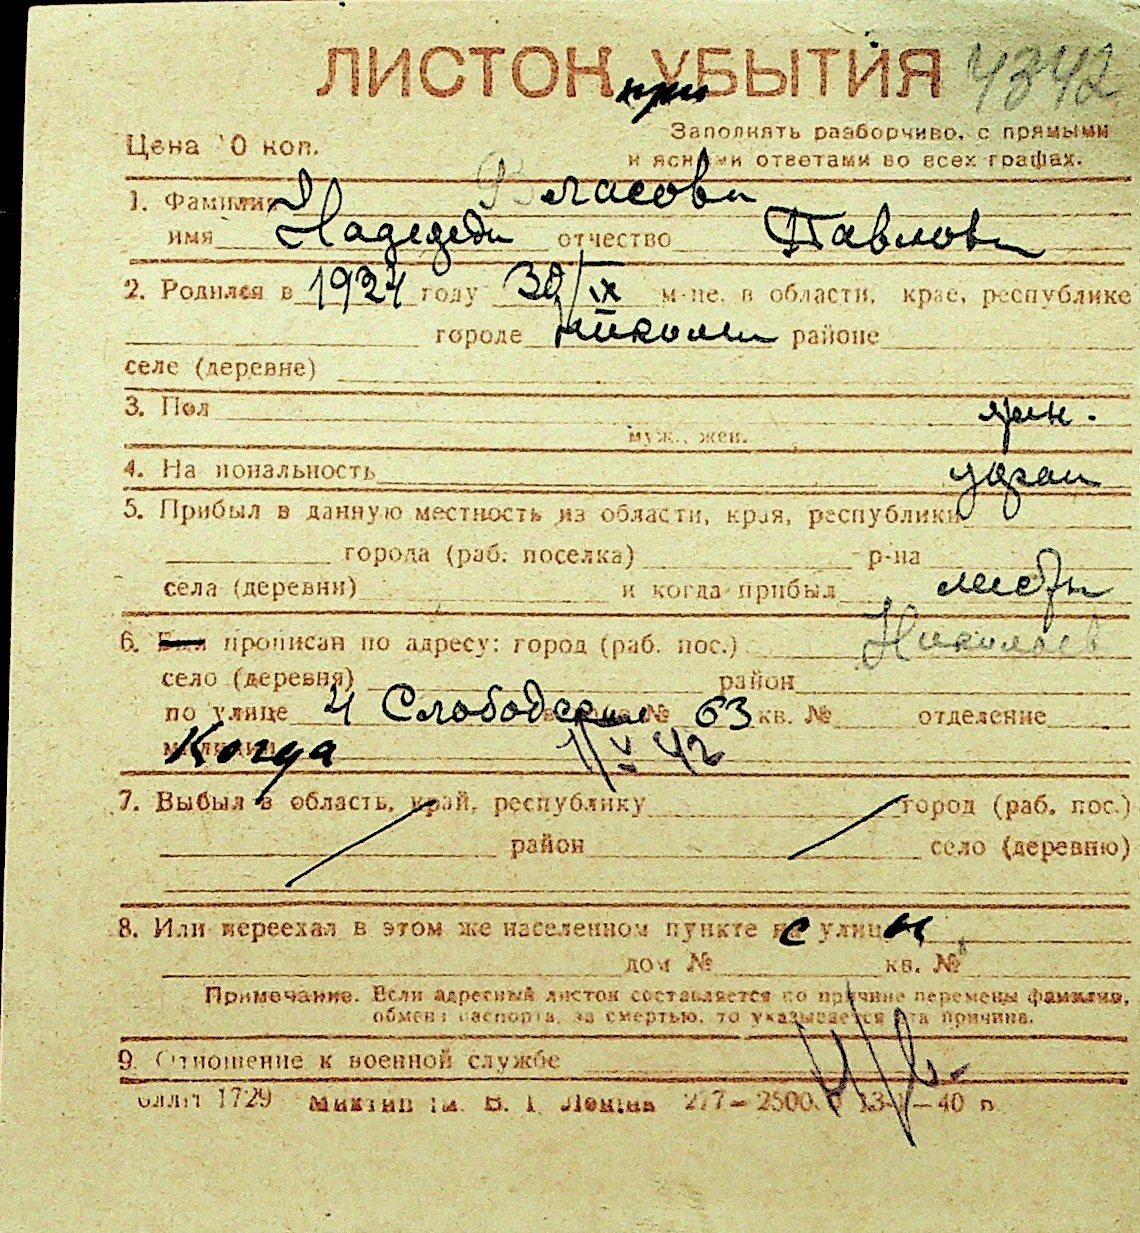 ЛИСТОК УБЫТИЯ 4342
при
Цена 10 коп. Заполнять разборчиво, с прямыми
и ясными ответами во всех графах.
1. Фамилия Власова
имя отчество Павловн
2. Родился в 1924 году 30/IX м-це, в области, крае, республике
городе районе
селе (деревне)
3. Пол жен.
муж., жен.
4. Национальность украи
5. Прибыл в данную местность из области, края, республики
города (раб. поселка) р-на
села (деревни) и когда прибыл местн
6. Был прописан по адресу: город (раб. пос.) Николаев
село (деревня) район
по улице 4 Слободская дома № 63 кв. № отделение
милиции Когда 1/V 42
7. Выбыл в область, край, республику город (раб. пос.)
район село (деревню)
8. Или переехал в этом же населенном пункте с улицы
дом № кв. №
Примечание. Если адресный листок составляется по причине перемены фамилии,
обмена паспорта, за смертью, то указывается эта причина.
9. Отношение к военной службе
1729 В. І. Леніна 277—2500 40 р.